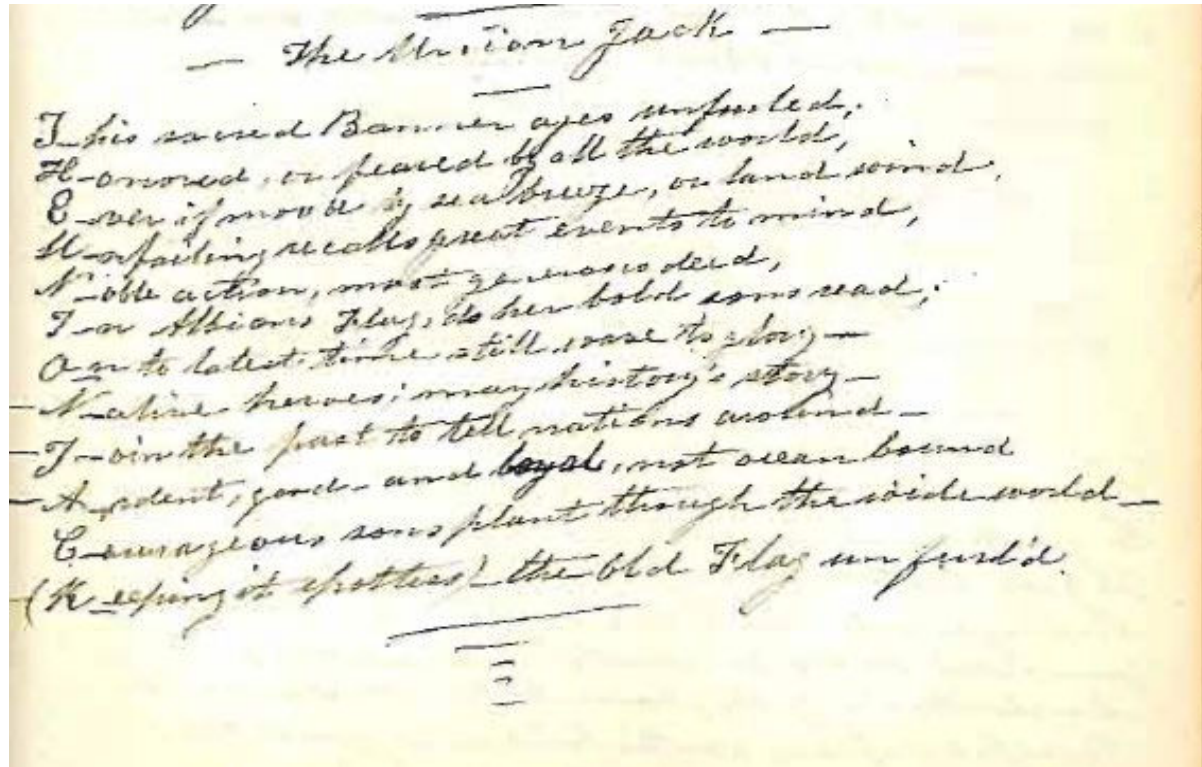 — The Union Jack —
T-his sacred Banner ages unfurled,
H-onored, or feared by all the world,
E-ver if moved by sea breeze, or land wind,
U-nfailing recalls great events to mind,
N-oble action, most generous deed,
I-n Albions Flag, do her bold sons read;
O-n to latest time still wave to glory—
—N-ative heroes; may history's story—
—J-oin the past to tell nations around—
—A-rdent, good- and loyal, not ocean bound
C-ourageous sons plant through the wide world—
—(K-eeping it spotless)- the Old Flag unfurl'd.